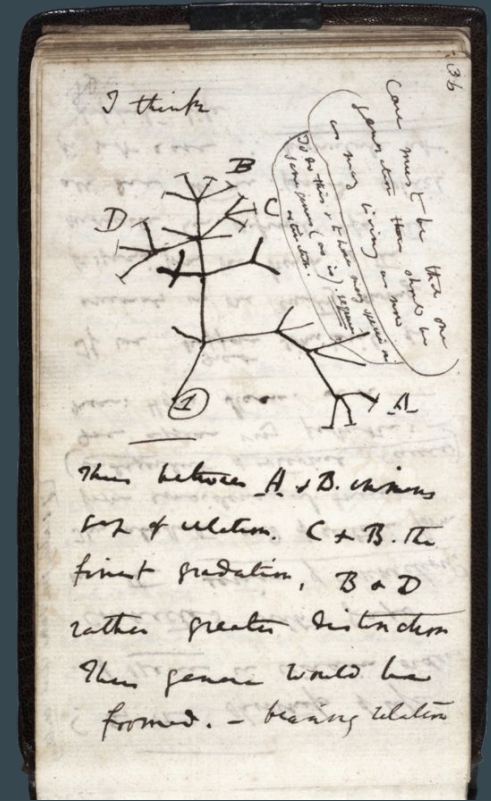 36
I think
Case must be that one
generation then should be
as many living as now
To do this & to have many species in
same genus (as is) requires
extinction
B
C
D
A
1
Thus between A & B. immens
gap of relation. C & B. the
finest gradation, B & D
rather greater distinction
Thus genera would be
formed. — bearing relation